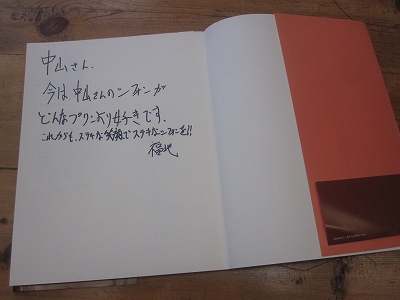 中山さん、
今は中山さんのシフォンが
どんなプリンより好きです、
これからも、ステキな笑顔でステキなシフォンを!!
福地